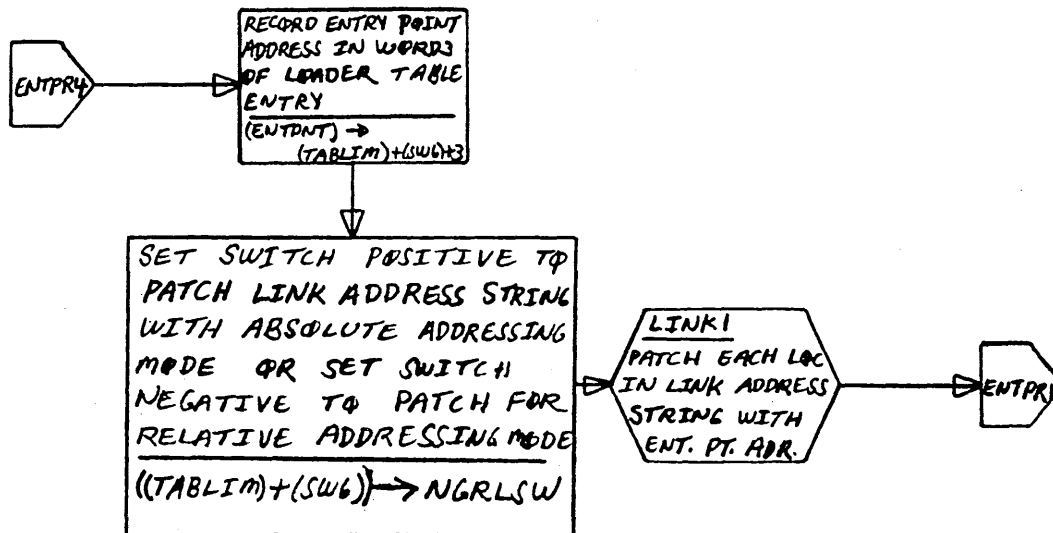 ENTPR4
RECORD ENTRY POINT
ADDRESS IN WORD3
OF LOADER TABLE
ENTRY
(ENTPNT) →
(TABLIM)+(SW6)+3
SET SWITCH POSITIVE TO
PATCH LINK ADDRESS STRING
WITH ABSOLUTE ADDRESSING
MODE OR SET SWITCH
NEGATIVE TO PATCH FOR
RELATIVE ADDRESSING MODE
((TABLIM)+(SW6)) → NGRLSW
LINK1
PATCH EACH LOC
IN LINK ADDRESS
STRING WITH
ENT. PT. ADR.
ENTPR1